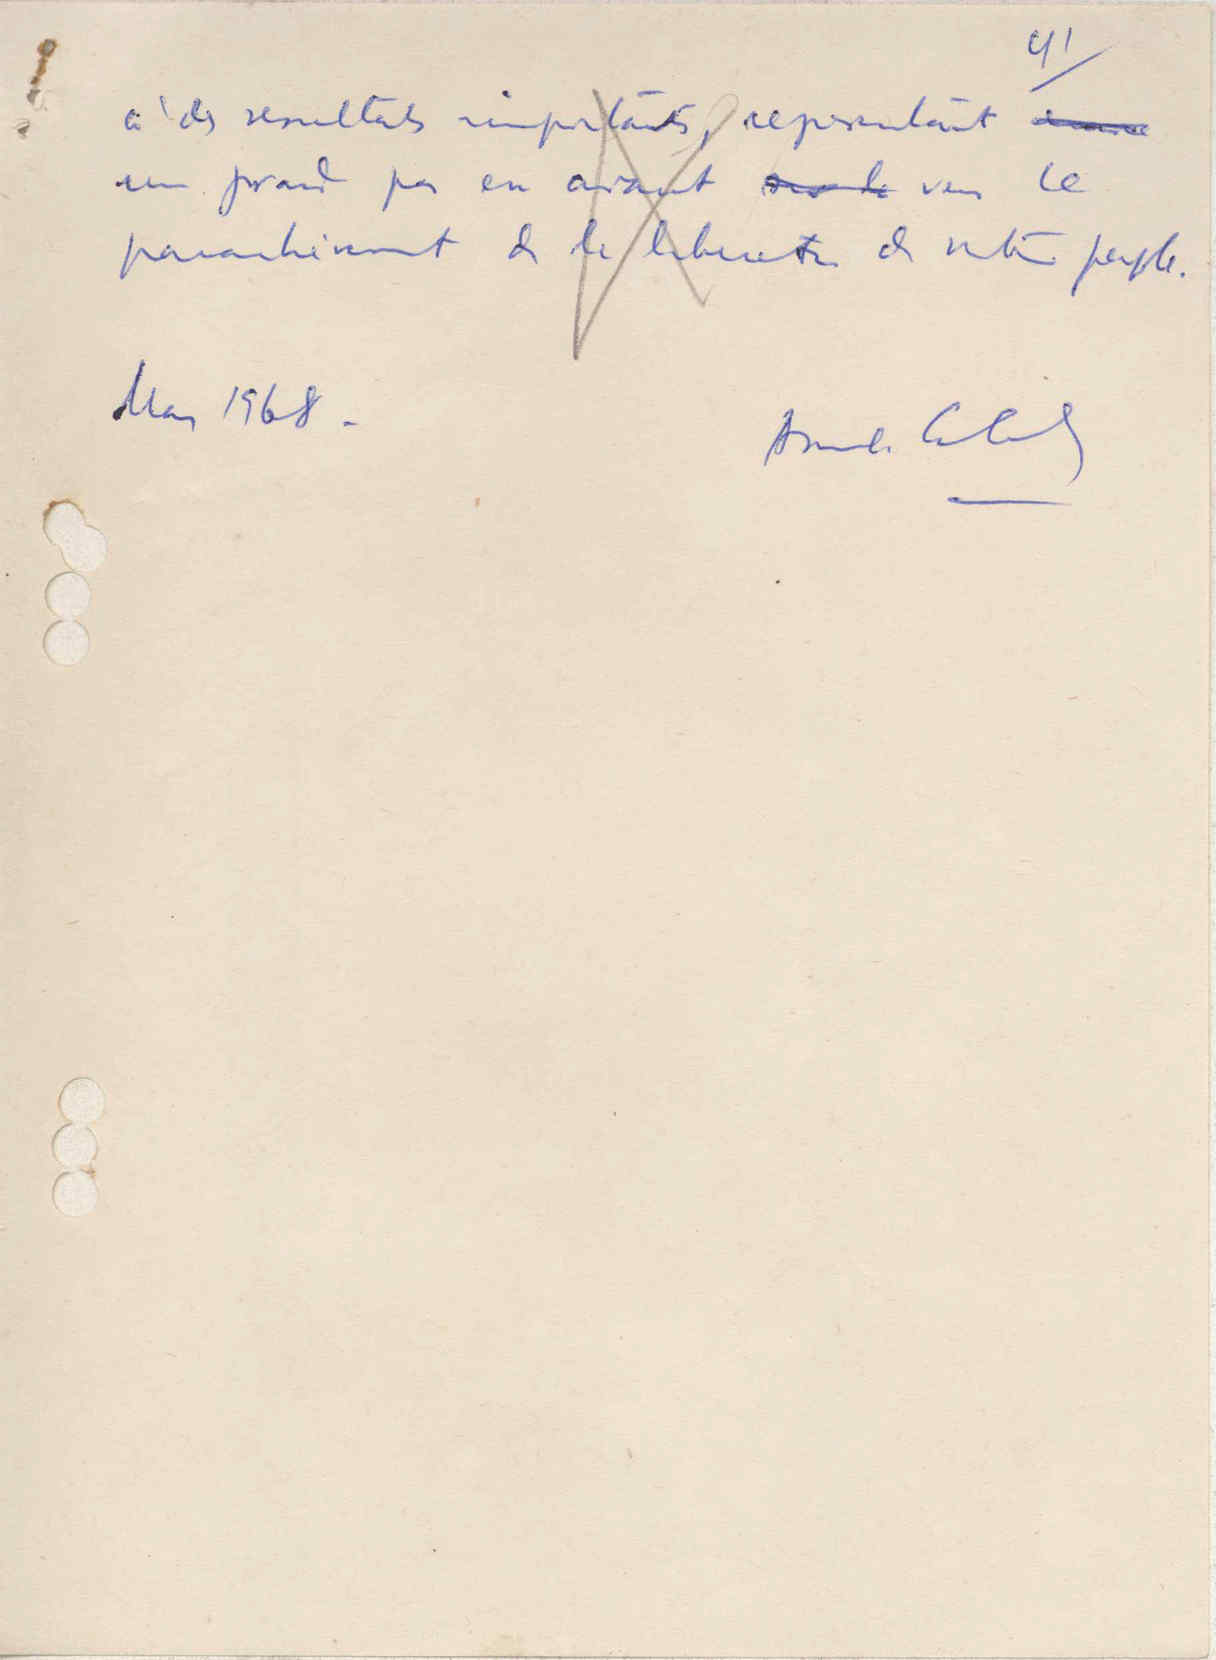 41
à des resultats importants, representant
un grand pas en avant vers le
parachèvement de la liberation de notre peuple.
Mars 1968.
Amílcar Cabral